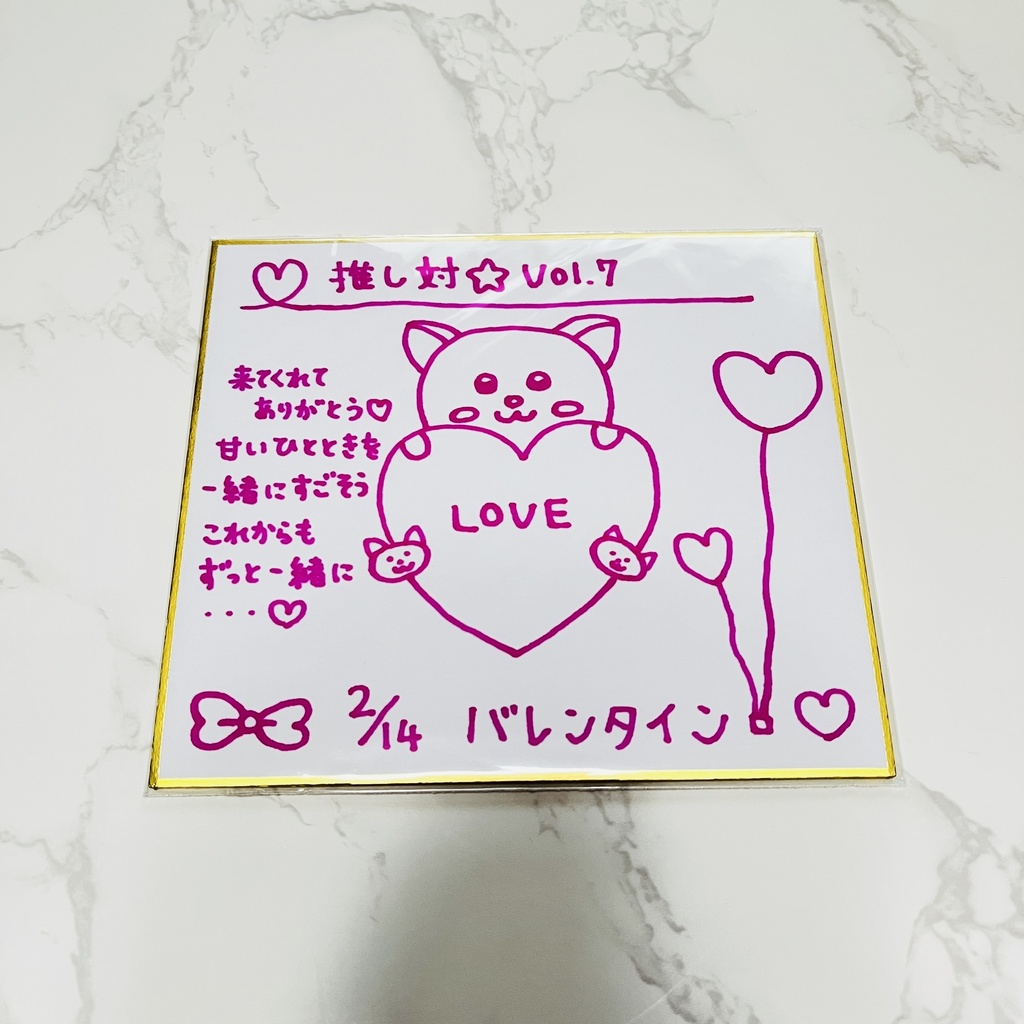 ♡ 推し対☆Vol.7
来てくれて
ありがとう♡
甘いひとときを
一緒にすごそう
これからも
ずっと一緒に
・・・♡
LOVE
2/14 バレンタイン